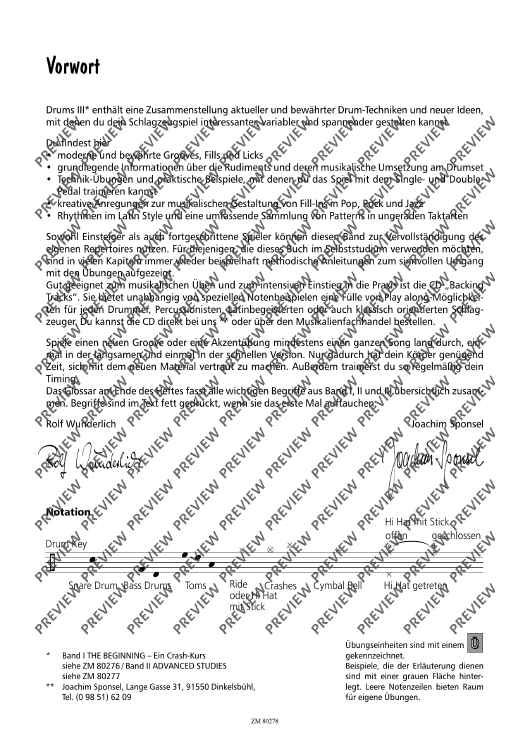 Vorwort
Drums III* enthält eine Zusammenstellung aktueller und bewährter Drum-Techniken und neuer Ideen,
mit denen du dein Schlagzeugspiel interessanter, variabler und spannender gestalten kannst.
Du findest hier
• moderne und bewährte Grooves, Fills und Licks
• grundlegende Informationen über die Rudiments und deren musikalische Umsetzung am Drumset
• Technik-Übungen und praktische Beispiele, mit denen du das Spiel mit dem Single- und Double-
Pedal trainieren kannst
• kreative Anregungen zur musikalischen Gestaltung von Fill-Ins in Pop, Rock und Jazz
• Rhythmen im Latin Style und eine umfassende Sammlung von Patterns in ungeraden Taktarten
Sowohl Einsteiger als auch fortgeschrittene Spieler können diesen Band zur Vervollständigung des
eigenen Repertoires nutzen. Für diejenigen, die dieses Buch im Selbststudium verwenden möchten,
sind in vielen Kapiteln immer wieder beispielhaft methodische Anleitungen zum sinnvollen Umgang
mit den Übungen aufgezeigt.
Gut geeignet zum musikalischen Üben und zum intensiven Einstieg in die Praxis ist die CD „Backing
Tracks“. Sie bietet unabhängig von speziellen Notenbeispielen eine Fülle von Play along-Möglichkei-
ten für jeden Drummer, Percussionisten, Latinbegeisterten oder auch klassisch orientierten Schlag-
zeuger. Du kannst die CD direkt bei uns ** oder über den Musikalienfachhandel bestellen.
Spiele einen neuen Groove oder eine Akzentübung mindestens einen ganzen Song lang durch, ein-
mal in der langsamen und einmal in der schnellen Version. Nur dadurch hat dein Körper genügend
Zeit, sich mit dem neuen Material vertraut zu machen. Außerdem trainierst du so regelmäßig dein
Timing.
Das Glossar am Ende des Heftes fasst alle wichtigen Begriffe aus Band I, II und III übersichtlich zusam-
men. Begriffe sind im Text fett gedruckt, wenn sie das erste Mal auftauchen.
Rolf Wunderlich Joachim Sponsel
Rolf Wunderlich Joachim Sponsel
Notation
Hi Hat mit Stick
offen geschlossen
Drum Key
Snare Drum Bass Drums Toms Ride Crashes Cymbal Bell Hi Hat getreten
oder Hi Hat
mit Stick
* Band I THE BEGINNING – Ein Crash-Kurs
siehe ZM 80276 / Band II ADVANCED STUDIES
siehe ZM 80277
** Joachim Sponsel, Lange Gasse 31, 91550 Dinkelsbühl,
Tel. (0 98 51) 62 09
Übungseinheiten sind mit einem
gekennzeichnet.
Beispiele, die der Erläuterung dienen
sind mit einer grauen Fläche hinter-
legt. Leere Notenzeilen bieten Raum
für eigene Übungen.
ZM 80278